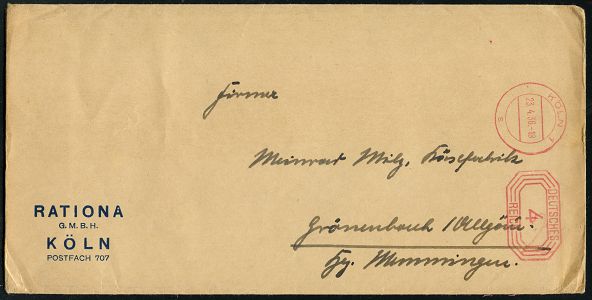 Firma
Meinrad Milz, Käsefabrik
Grönenbach / Allgäu.
Bz. Memmingen.
RATIONA
G.M.B.H.
KÖLN
POSTFACH 707
KÖLN 1
23.4.36.-18
s
DEUTSCHES
REICH
4